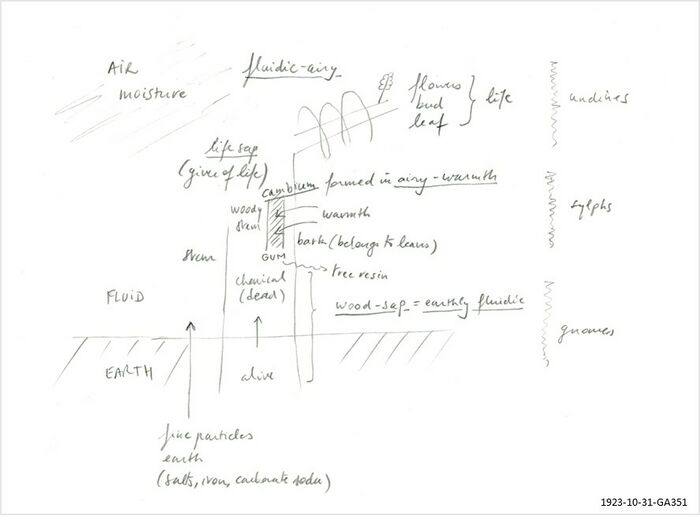 AIR
moisture
fluidic-airy
flowers
bud
leaf
life
undines
life sap
(giver of life)
cambium formed in airy-warmth
woody
stem
warmth
sylphs
bark (belongs to leaves)
stem
GUM
tree resin
chemical
(dead)
FLUID
wood-sap = earthly fluidic
gnomes
EARTH
alive
fine particles
earth
(salts, iron, carbonate soda)
1923-10-31-GA351